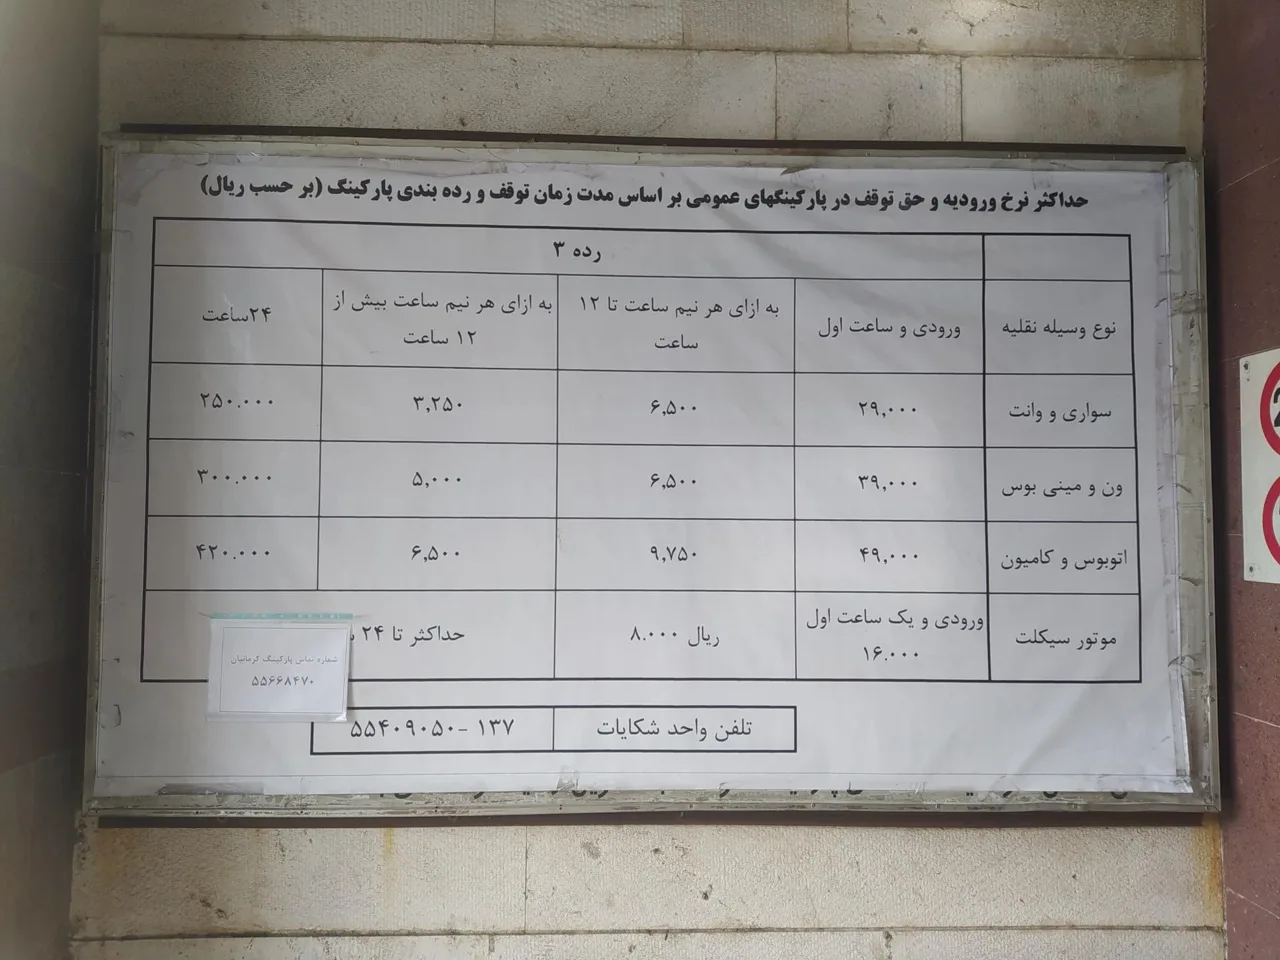 حداکثر نرخ ورودیه و حق توقف در پارکینگهای عمومی بر اساس مدت زمان توقف و رده بندی پارکینگ (بر حسب ریال)
رده ۳
نوع وسیله نقلیه
ورودی و ساعت اول
به ازای هر نیم ساعت تا ۱۲
ساعت
به ازای هر نیم ساعت بیش از
۱۲ ساعت
۲۴ساعت
سواری و وانت ۲۹,۰۰۰ ۶,۵۰۰ ۳,۲۵۰ ۲۵۰.۰۰۰
ون و مینی بوس ۳۹,۰۰۰ ۶,۵۰۰ ۵,۰۰۰ ۳۰۰.۰۰۰
اتوبوس و کامیون ۴۹,۰۰۰ ۹,۷۵۰ ۶,۵۰۰ ۴۲۰.۰۰۰
موتور سیکلت
ورودی و یک ساعت اول
۱۶.۰۰۰
ریال ۸.۰۰۰
حداکثر تا ۲۴
شماره تماس پارکینگ کرمانیان
۵۵۶۶۸۴۷۰
تلفن واحد شکایات ۱۳۷ -۵۵۴۰۹۰۵۰